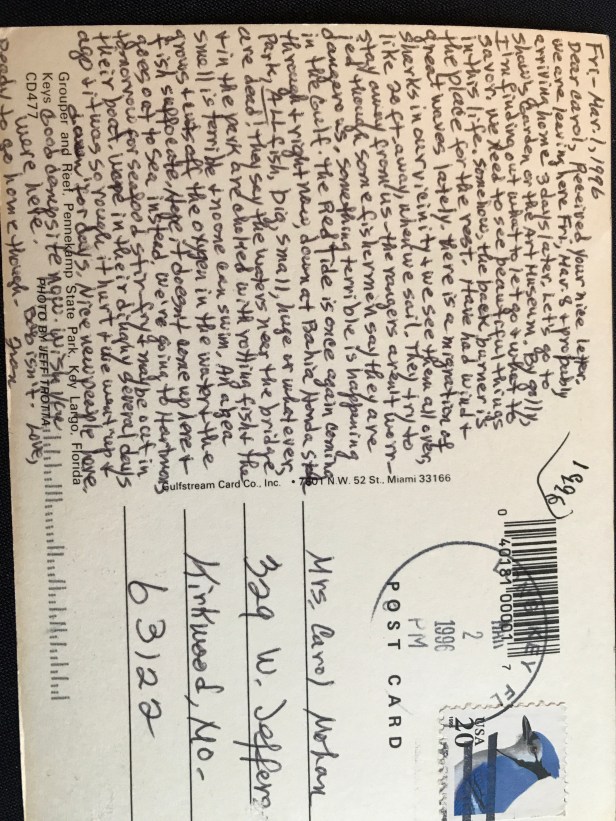 Fri.-Mar. 1, 1996
Dear Carol, Received your nice letter,
we are leaving here Fri, Mar. 8 & probably
arriving home 3 days later. Let's go to
Shaw's Garden or the Art Museum. By golly,
I'm finding out what to let go & what to
savor. We need to see beautiful things
in this life. Somehow, the back burner is
the place for the rest. Have had wind &
great waves lately. There is a migration of
sharks in our vicinity & we see them all over,
like 20 ft away, when we sail. They try to
stay away from us - the rangers aren't worr-
ied though some fishermen say they are
dangerous. Something terrible is happening
in the Gulf. The Red Tide is once again coming
through & right now, down at Bahia Honda State
Park, All fish, big, small, huge or whatever,
are dead! They say the waters near the bridge
& in the park are choked with rotting fish & the
small is terrible & no one can swim. An algea
grows & cuts off the oxygen in the water & the
fish suffocate. Hope it doesn't come up here &
goes out to sea instead. We're going to Hartmans
tomorrow for seafood stir-fry & maybe out in
their boat. Were in their dinghy several days
ago & it was so rough it hurt & we went up &
down for days. Nice new people here.
Good campsite now. Wish you
were here. Love,
Ready to go home though - Bob isn't. Fran
Grouper and Reef, Pennekamp State Park, Key Largo, Florida
Keys
CD477
PHOTO BY JEFF TROTTA
Gulfstream Card Co., Inc. • 7501 N.W. 52 St., Miami 33166
1996
0 40181 00001 7
KEY
FL
MAR
2
1996
PM
POST CARD
USA
20
Mrs. Carol Mohan
329 W. Jeffers
Kirkwood, Mo-
63122